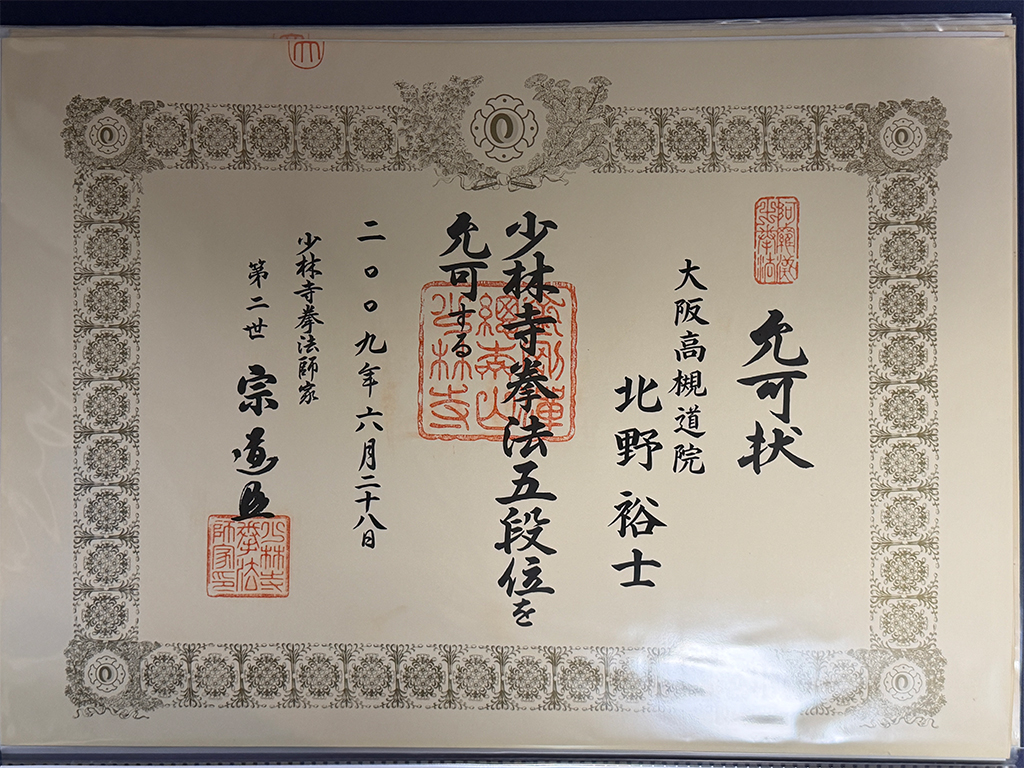 允可状
大阪高槻道院
北野裕士
少林寺拳法五段位を
允可する
二〇〇九年六月二十八日
少林寺拳法師家
第二世 宗道臣
少林寺
拳法
師家印